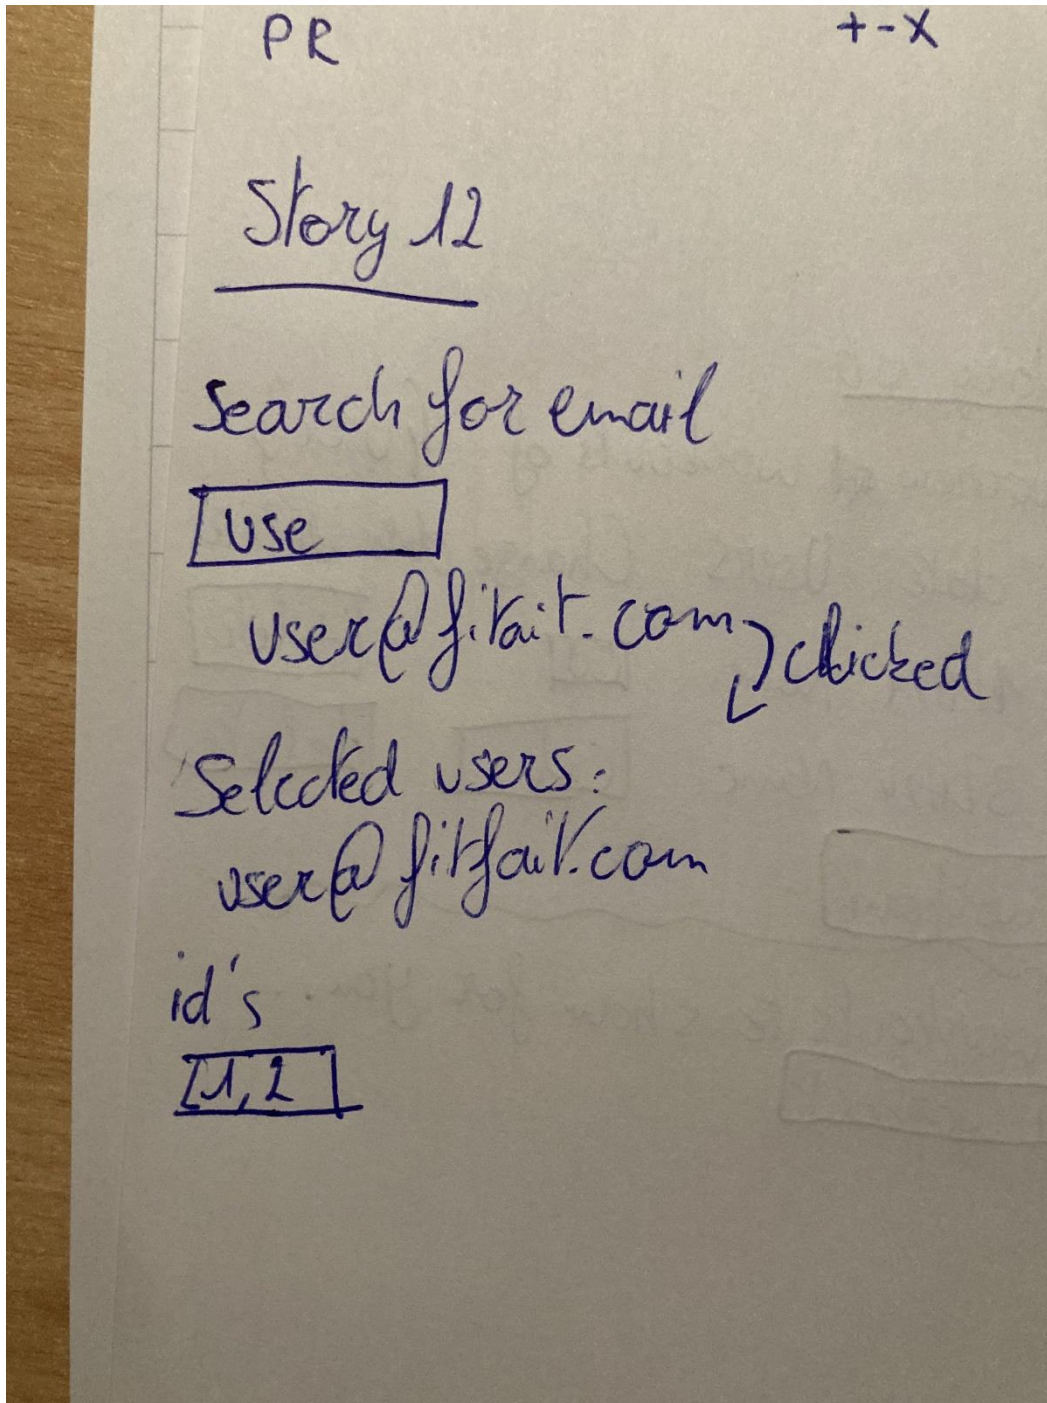 PR +-X
Story 12
search for email
use
user@fitait.com clicked
Selected users:
user@fitfait.com
id's
1,2